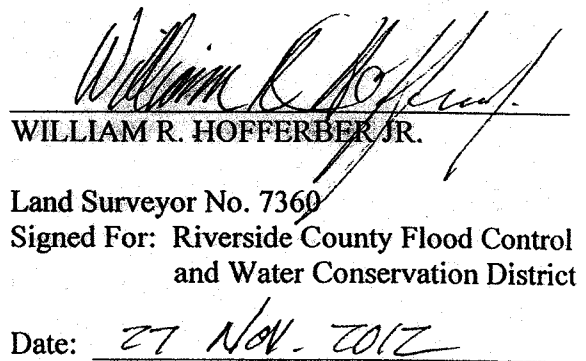 William R Hofferber Jr.
WILLIAM R. HOFFERBER JR.
Land Surveyor No. 7360
Signed For: Riverside County Flood Control
and Water Conservation District
Date: 27 Nov. 2012